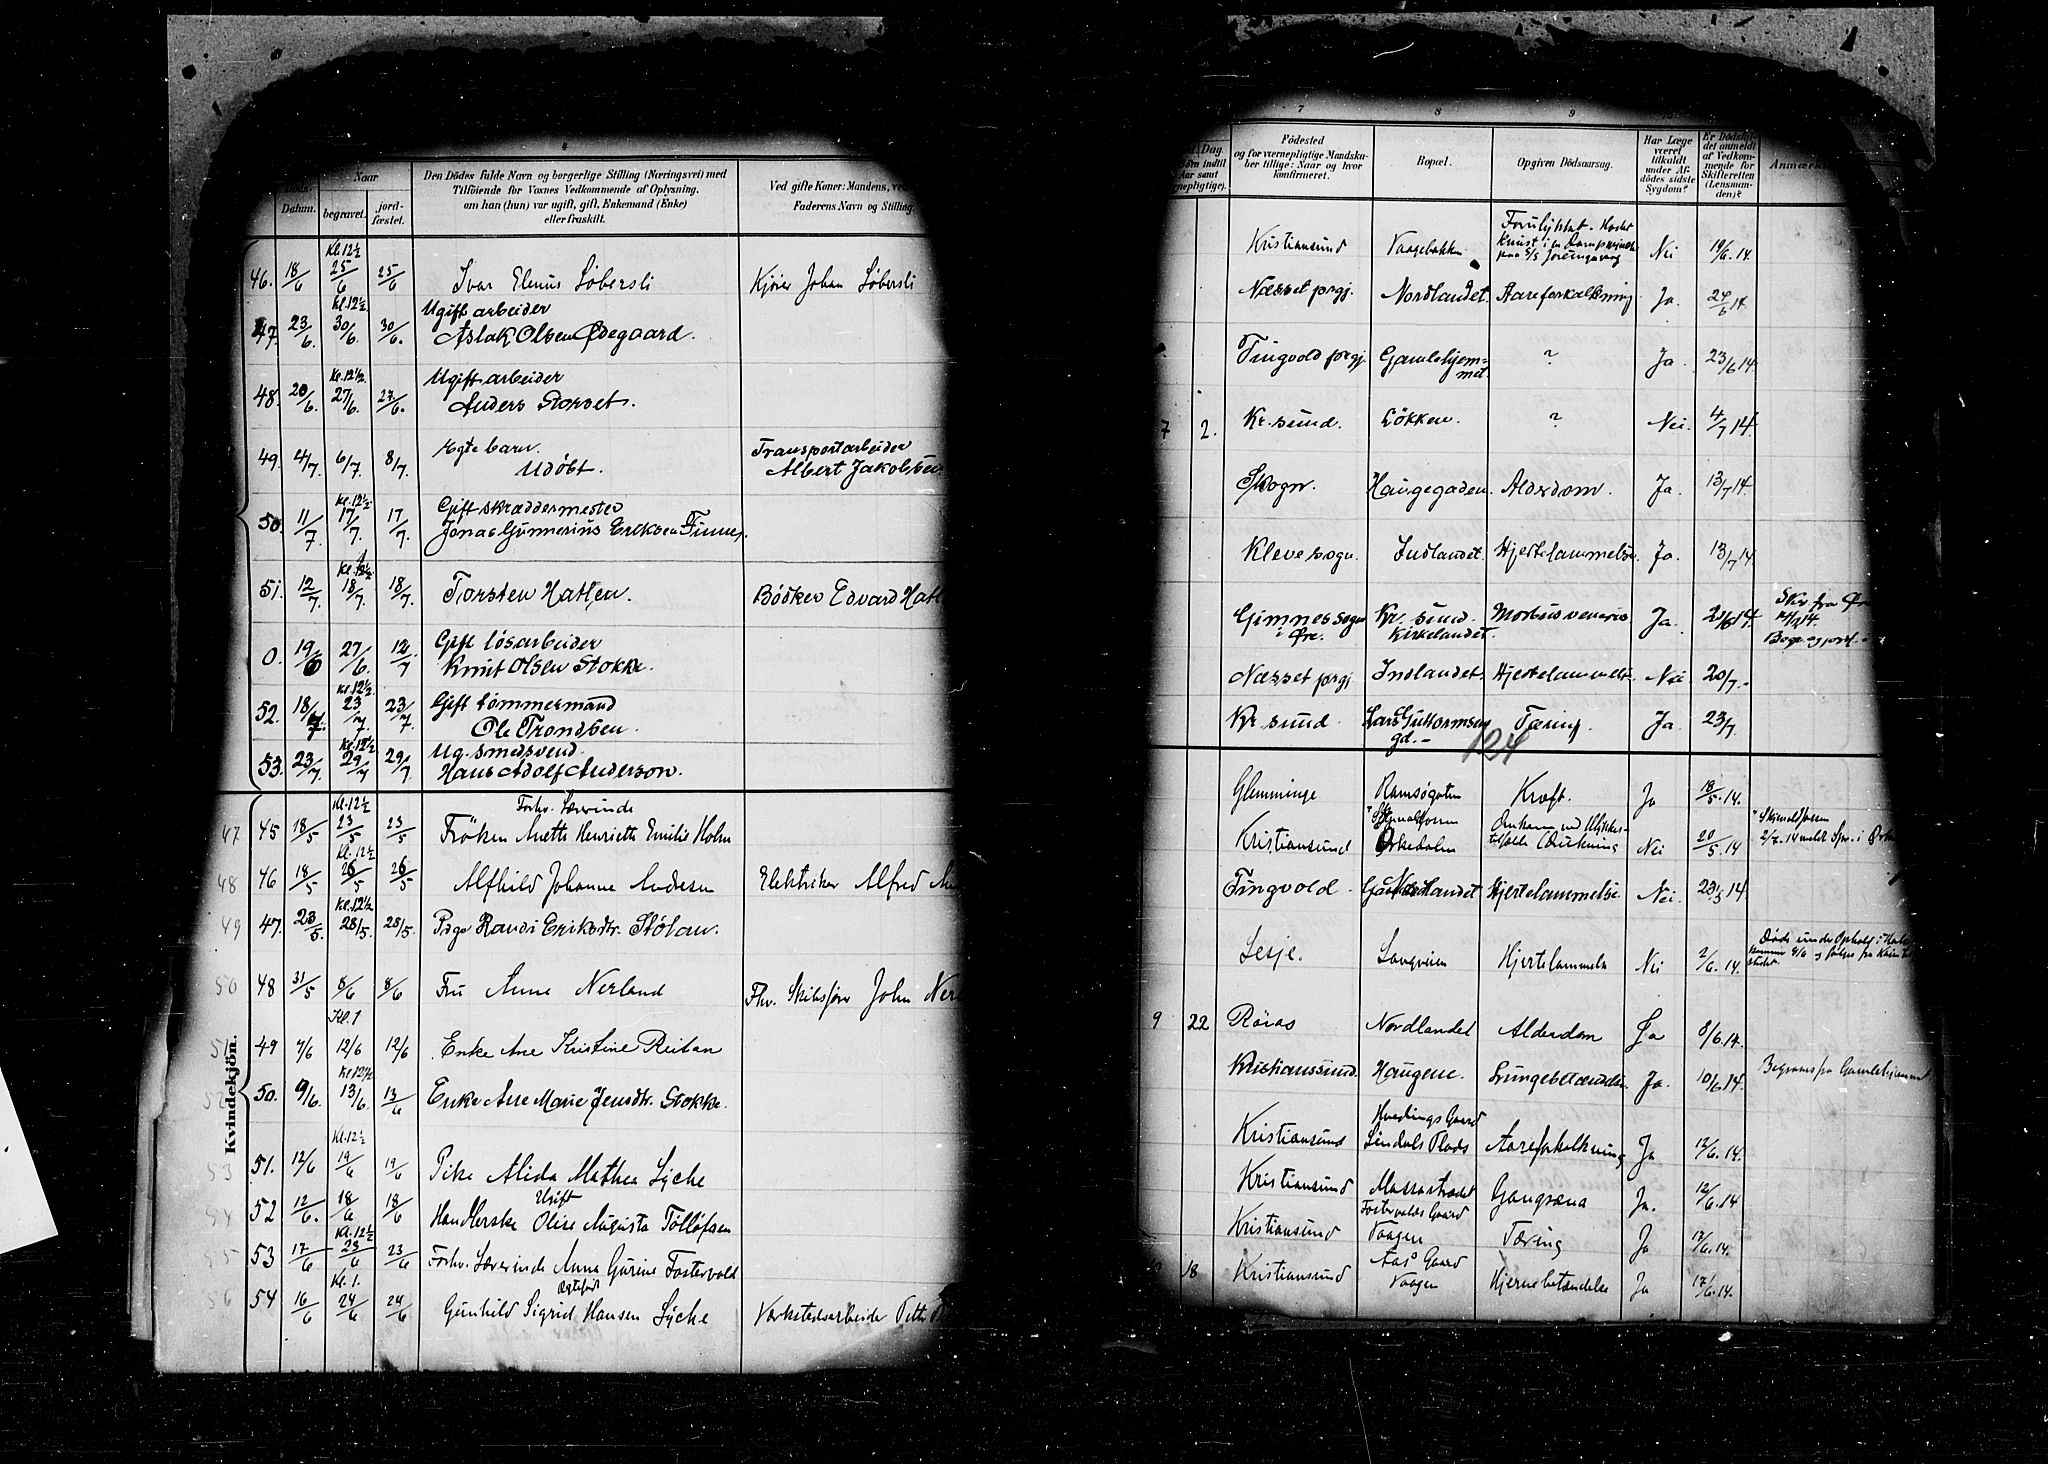 4
Döds-
Datum.
Naar
begravet.
jord-
fæstet.
Den Dödes fulde Navn og borgerlige Stilling (Næringsvei) med
Tilföiende for Voxnes Vedkommende af Oplysning,
om han (hun) var ugift, gift, Enkemand (Enke)
eller fraskilt.
Ved gifte Koner: Mandens, ve
Faderens Navn og Stilling.
Kl. 12½
46. 18/6 25/6 25/6 Ivar Elenius Löbersli Kjører Johan Löbersli
Kl. 12½. Ugift arbeider
47. 23/6. 30/6. 30/6. Aslak Olsen Ødegaard.
Kl. 12½. Ugift arbeider
48. 20/6. 27/6. 27/6. Anders Storset.
Ægte barn. Transportarbeider
49. 4/7. 6/7. 8/7. Udöbt. Albert Jakobsen
Kl. 12½. Gift skræddermester
50. 11/7. 17/7. 17/7. Jonas Gunnerius Eriksen Finnes.
Kl. 12½.
51. 12/7. 18/7. 18/7. Torsten Hatlen. Bödker Edvard Hatl
Gift lösarbeider
0. 19/6 27/6. 12/7 Knut Olsen Stokke.
Kl. 12½. Gift tömmermand
52. 18/7. 23/7. 23/7. Ole Trondsen.
Kl. 12½ Ug. smedsvend.
53. 23/7. 29/7 29/7. Hans Adolf Anderson.
Kl. 12½ Forhv. Lærerinde
47 45 18/5 23/5 23/5 Fröken Anette Henriette Emilie Holm
Kl. 12½
48 46 18/5 26/5 26/5 Alfhild Johanne Andresen Elektriker Alfred An
Kl. 12½
49 47. 23/5. 28/5. 28/5. Pige Randi Eriksdtr. Stölan.
50 48 31/5 8/6 8/6 Fru Anne Nerland Fhv. Skibsförer John Ner
Kl. 1
51 49 7/6 12/6 12/6 Enke Ane Kristine Reitan
Kl 12½
52 50. 9/6. 13/6. 13/6 Enke Ane Marie Jensdtr. Stokke.
Kl. 12½
53 51. 12/6 19/6 19/6 Pike Alida Mathea Lyche
Ugift
54 52 12/6. 18/6 18/6 Handlerske Oline Augusta Tölløfsen
Kl. 12½
55 53 17/6 23/6 23/6 Forhv. Lærerinde Anna Gurine Fostervold
Kl. 1. Ægtefød
56 54 16/6 24/6 24/6 Gunhild Sigrid Hansen Lyche Værkstedsarbeider
Kvindekjön.
7 8 9
Dag
Födested
og for værnepligtige Mandska-
ber tillige: Naar og hvor
konfirmeret.
Bopæl.
Opgiven Dödsaarsag.
Har Læge
været
tilkaldt
under Af-
dödes sidste
Sygdom?
Er Dödsfal-
det anmeldt
af Vedkom-
mende for
Skifteretten
(Lensman-
den)?
Anmærk
Kristiansund Vaagebakken Nei 19/6. 14.
Næsset prgj. Nordlandet. Aareforkalkning Ja. 24/6 14.
Tingvold prgj. Gamlehjem-
met. ? Ja. 23/6 14.
7 2. Kr.sund. Lökken. ? Nei. 4/7 14.
Skogn. Haugegaden. Alderdom. Ja. 13/7 14.
Kleve sogn. Indlandet. Hjertelammelse. Ja. 13/7 14.
Gimnes sogn
i Øre. Kr. sund.
Kirkelandet. Morbus venerius Ja. 20/6 14. Skr. fra Øre
Næsset prgj Indlandet. Hjertelammelse. Nei. 20/7.-
Kr sund. Lars Guttormsen
gd.- Tæring. Ja 23/7.
124
Glemminge Ramsøgaten Kræft. Ja 18/5. 14.
Kristiansund Orkedalen Nei 20/5. 14
Tingvold. Nordlandet Hjertelammelse. Nei. 23/5 14.
Lesje. Langveien Hjertelammelse Nei 2/6. 14.
9 22 Röros Nordlandet Alderdom Ja 8/6. 14.
Kristianssund. Haugene. Lungebetændelse. Ja. 10/6 14. Begraves fra Gamlehjemmet
Kristiansund Hvedings Gaard
Lindals Plads Aareforkalkning Ja 12/6. 14.
Kristiansund Massastrædet Gangræna Ja. 12/6. 14
Kristiansund Fostervolds Gaard
Vaagen Tæring Ja 17/6. 14.
18 Kristiansund Aas Gaard
Vaagen Hjernebetændelse Ja 17/6. 14.